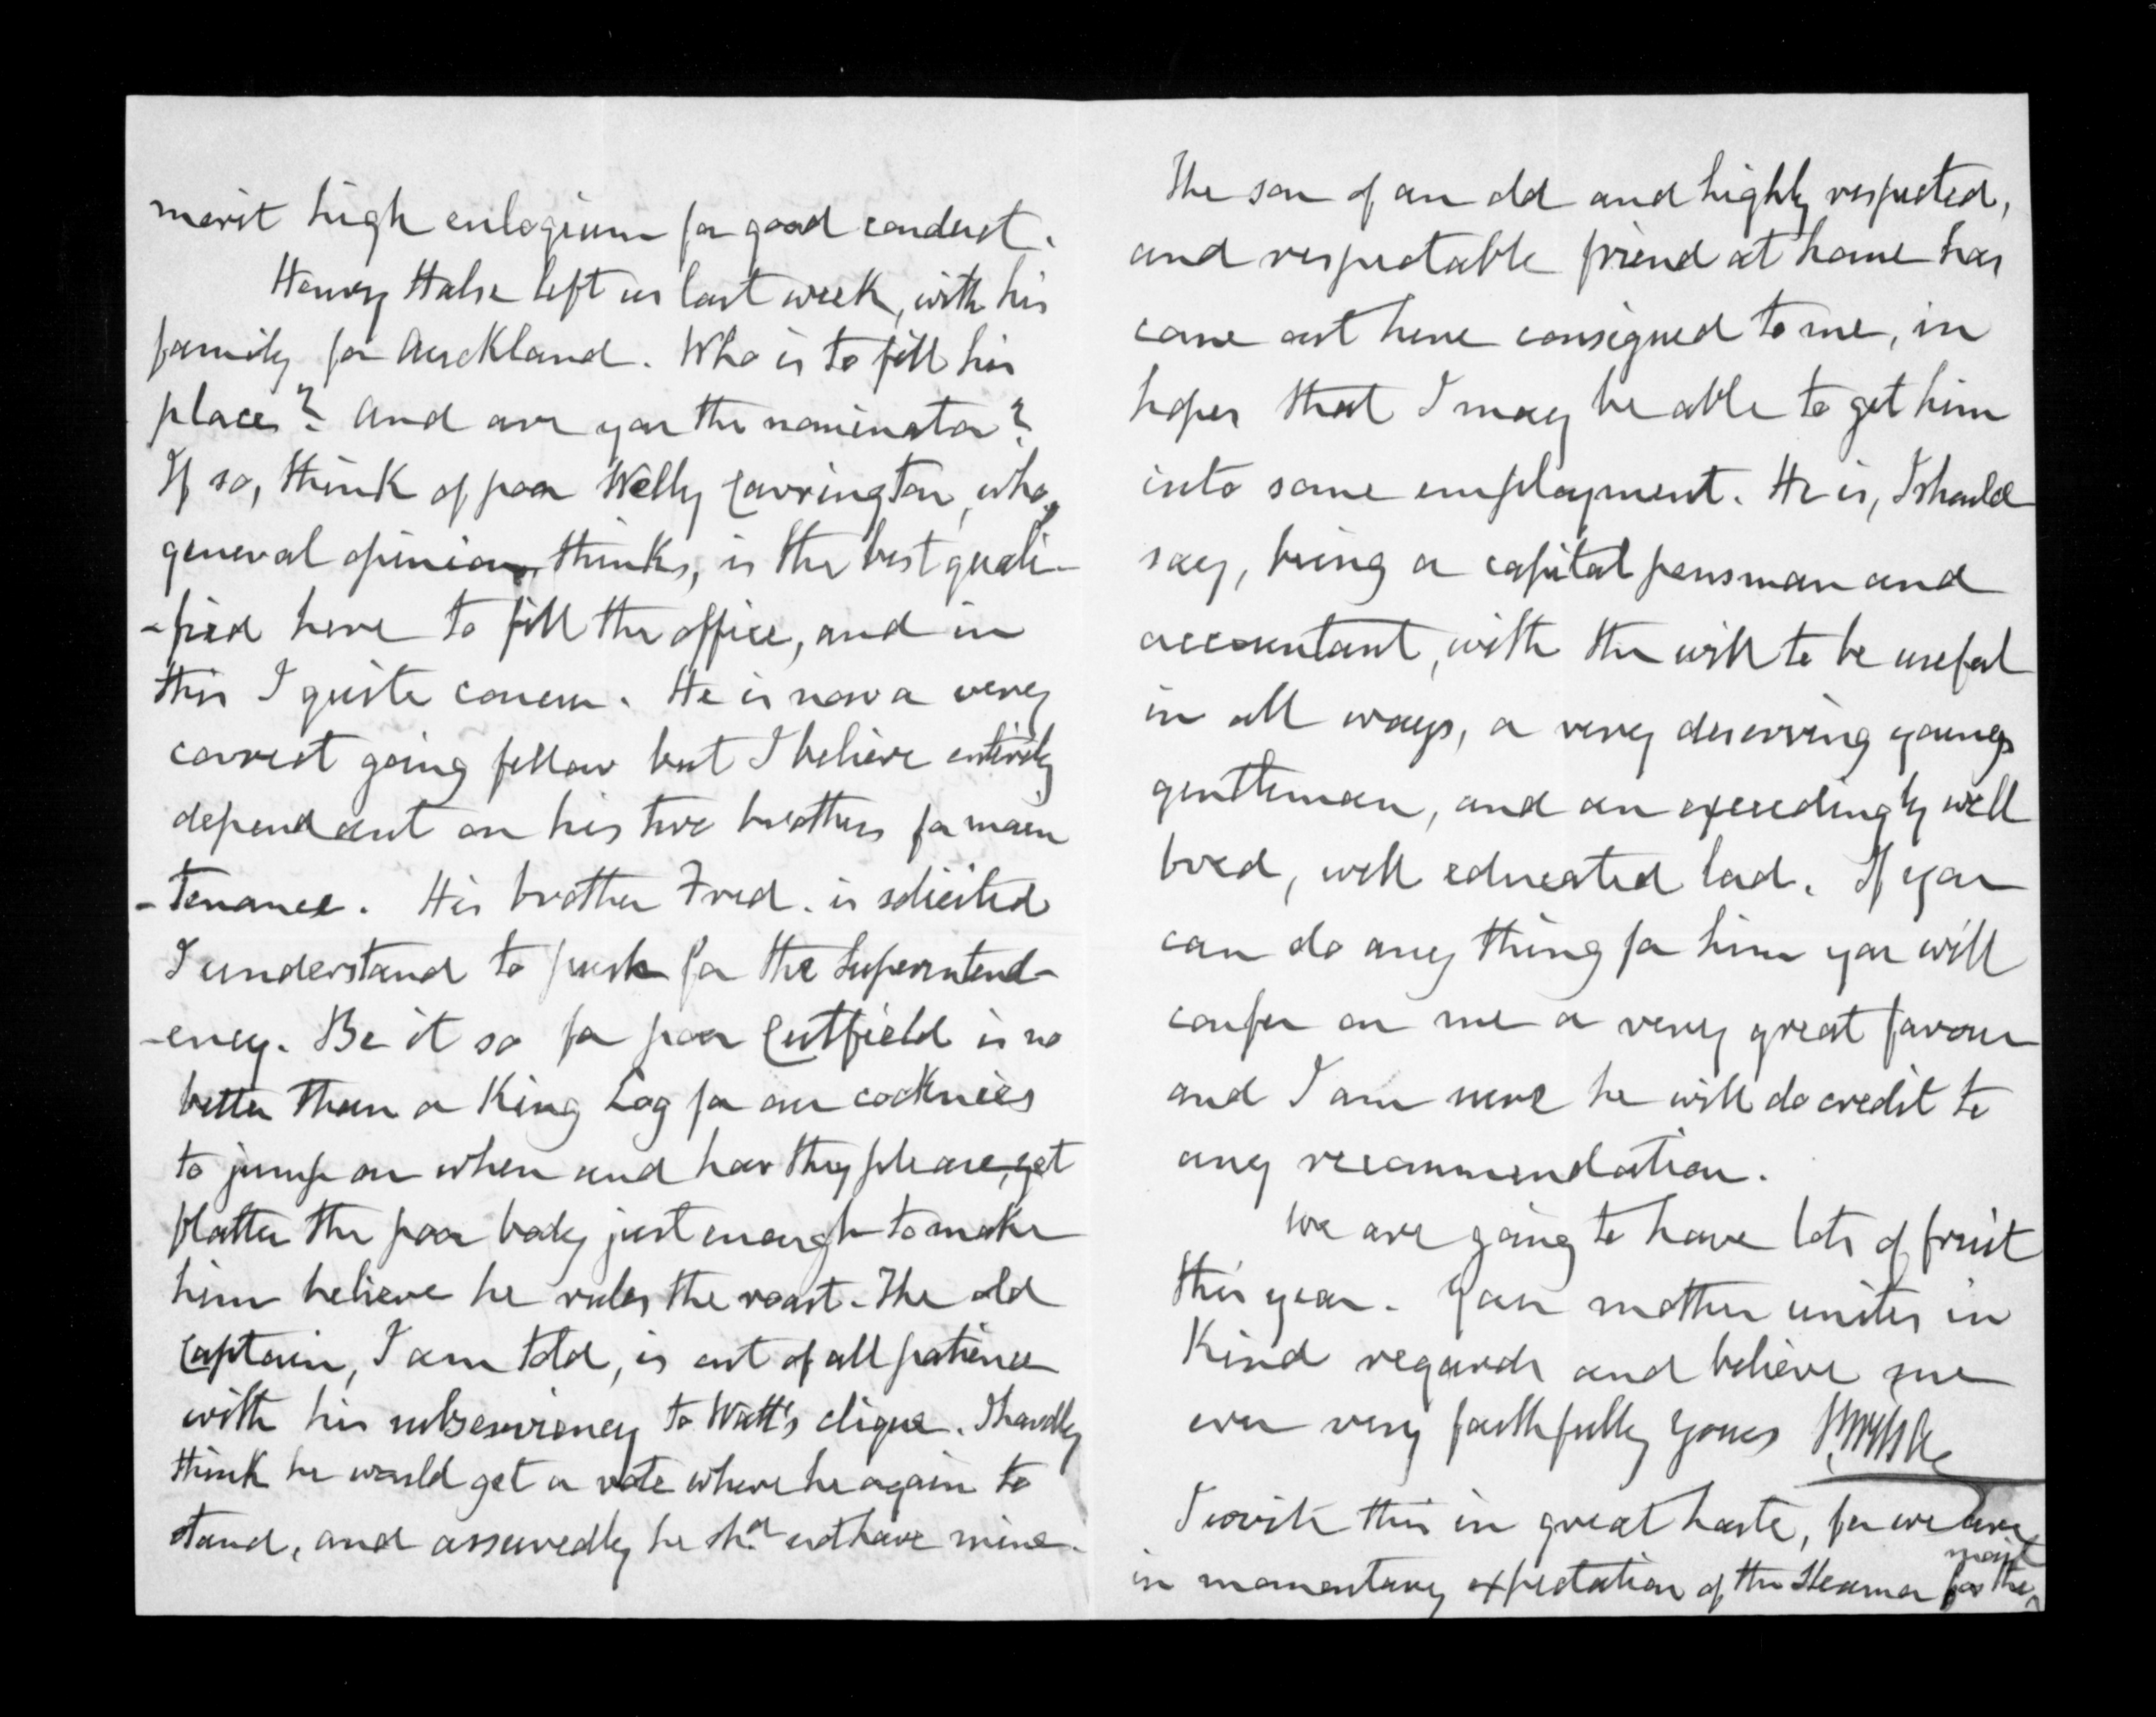 merit high eulogium for good conduct.
Henry Halse left us last week, with his
family for Auckland. Who is to fill his
place? And are you the nominator?
If so, think of poor Welly Carrington, who,
general opinion thinks, is the best quali-
-fied here to fill the office, and in
this I quite concur. He is now a very
correct going fellow but I believe entirely
dependant on his two brothers for main
-tenance. His brother Fred. is solicited
I understand to push for the Superintend-
-ency. Be it so for poor Cutfield is no
better than a King Log for our cocknies
to jump on when and how they please, yet
flatter the poor body just enough to make
him believe he rules the roast. The old
Captain, I am told, is out of all patience
with his subserviency to Watt's clique. I hardly
think he would get a vote where he again to
stand, and assuredly he shd. not have mine.
The son of an old and highly respected,
and respectable friend at home has
come out here consigned to me, in
hopes that I may be able to get him
into some employment. He is, I should
say, being a capital pensman and
accountant, with the will to be useful
in all ways, a very deserving young
gentleman, and an exceedingly well
bred, well educated lad. If you
can do any thing for him you will
confer on me a very great favour
and I am sure he will do credit to
any recommendation.
We are going to have lots of fruit
this year. Your mother unites in
Kind regards and believe me
ever very faithfully yours
I write this in great haste, for we are
in momentary expectation of the Steamer for the
mail